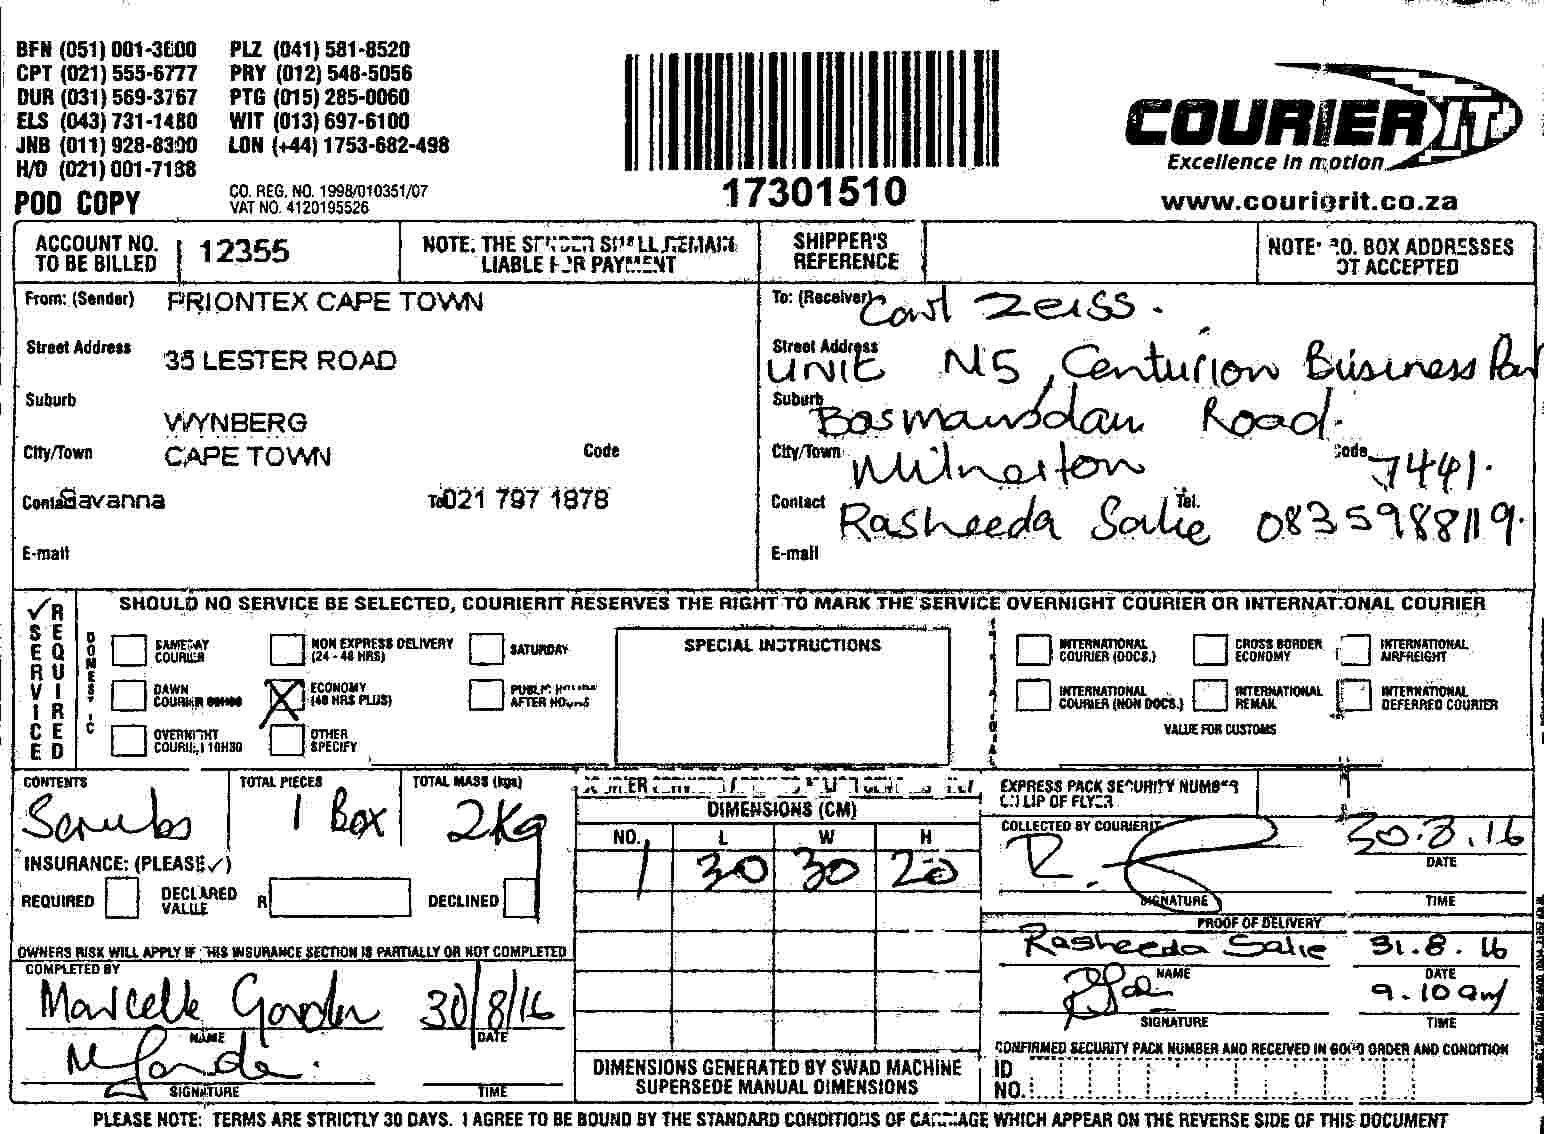 BFN (051) 001-3600 PLZ (041) 581-8520
CPT (021) 555-6777 PRY (012) 548-5056
DUR (031) 569-3767 PTG (015) 285-0060
ELS (043) 731-1480 WIT (013) 697-6100
JNB (011) 928-8300 LON (+44) 1753-682-498
H/O (021) 001-7188
POD COPY
CO. REG. NO. 1998/010351/07
VAT NO. 4120195526
17301510
COURIER IT
Excellence in motion
www.courierit.co.za
ACCOUNT NO. TO BE BILLED 12355
NOTE: THE SENDER SHALL REMAIN LIABLE FOR PAYMENT
SHIPPER'S REFERENCE
NOTE: P.O. BOX ADDRESSES NOT ACCEPTED
From: (Sender) PRIONTEX CAPE TOWN
Street Address 35 LESTER ROAD
Suburb WYNBERG
City/Town CAPE TOWN Code
Contact Savanna Tel 021 797 1878
E-mail
To: (Receiver) Carl Zeiss.
Street Address UNIT N5, Centurion Business Par
Suburb Bosmansdam Road.
City/Town Milnerton Code 7441.
Contact Rasheeda Salie Tel. 0835988119.
E-mail
SERVICE REQUIRED
SHOULD NO SERVICE BE SELECTED, COURIERIT RESERVES THE RIGHT TO MARK THE SERVICE OVERNIGHT COURIER OR INTERNATIONAL COURIER
DOMESTIC
SAMEDAY COURIER
NON EXPRESS DELIVERY (24 - 48 HRS)
SATURDAY
DAWN COURIER
X ECONOMY (48 HRS PLUS)
PUBLIC HOLIDAY AFTER HOURS
OVERNIGHT COURIER 10H30
OTHER SPECIFY
SPECIAL INSTRUCTIONS
INTERNATIONAL COURIER (DOCS.)
CROSS BORDER ECONOMY
INTERNATIONAL AIRFREIGHT
INTERNATIONAL COURIER (NON DOCS.)
INTERNATIONAL REMAIL
INTERNATIONAL DEFERRED COURIER
VALUE FOR CUSTOMS
CONTENTS Scrubs
TOTAL PIECES 1 Box
TOTAL MASS (kgs) 2Kg
INSURANCE: (PLEASE ✓)
REQUIRED DECLARED VALUE R DECLINED
OWNERS RISK WILL APPLY IF THIS INSURANCE SECTION IS PARTIALLY OR NOT COMPLETED
COMPLETED BY
Marcelle Gordon 30/8/16
NAME DATE
SIGNATURE TIME
DIMENSIONS (CM)
NO. L W H
1 30 30 20
DIMENSIONS GENERATED BY SWAD MACHINE
SUPERSEDE MANUAL DIMENSIONS
EXPRESS PACK SECURITY NUMBER
ON LIP OF FLYER
COLLECTED BY COURIERIT
30.8.16
DATE
SIGNATURE TIME
PROOF OF DELIVERY
Rasheeda Salie 31.8.16
NAME DATE
9.10am
SIGNATURE TIME
CONFIRMED SECURITY PACK NUMBER AND RECEIVED IN GOOD ORDER AND CONDITION
ID NO.
PLEASE NOTE: TERMS ARE STRICTLY 30 DAYS. I AGREE TO BE BOUND BY THE STANDARD CONDITIONS OF CARRIAGE WHICH APPEAR ON THE REVERSE SIDE OF THIS DOCUMENT